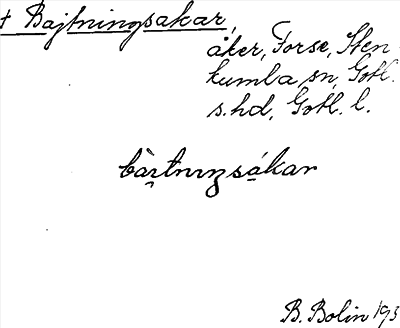 † Bajtningsakar,
åker, Forse, Sten-
kumla sn, Gotl.
s. hd, Gotl. l.
bàɪtnɪŋsákar
B. Bolin 193